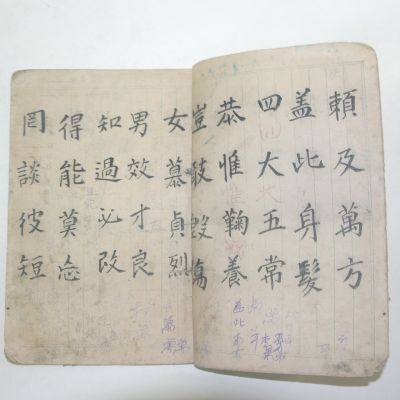 頼及萬方
盖此身髮
四大五常
恭惟鞠養
豈敢毀傷
女慕貞烈
男效才良
知過必改
得能莫忘
罔談彼短